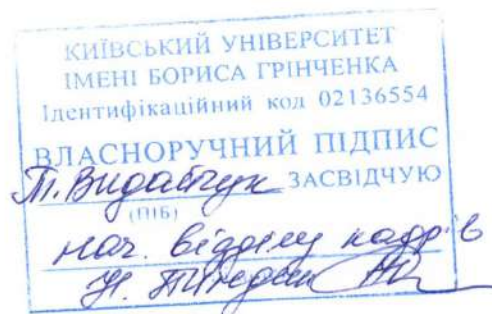 КИЇВСЬКИЙ УНІВЕРСИТЕТ
ІМЕНІ БОРИСА ГРІНЧЕНКА
Ідентифікаційний код 02136554
ВЛАСНОРУЧНИЙ ПІДПИС
Т. Видайчук ЗАСВІДЧУЮ
(ПІБ)
нач. відділу кадрів
Н.